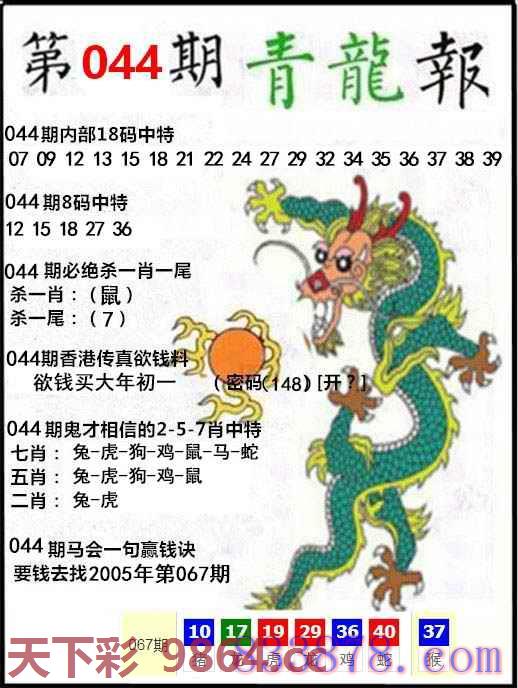 第044期青龍報
044期内部18码中特
07 09 12 13 15 18 21 22 24 27 29 32 34 35 36 37 38 39
044期8码中特
12 15 18 27 36
044 期必绝杀一肖一尾
杀一肖：（鼠）
杀一尾：（7）
044期香港传真欲钱料
欲钱买大年初一 （密码(148) [开？]
044期鬼才相信的2-5-7肖中特
七肖： 兔-虎-狗-鸡-鼠-马-蛇
五肖： 兔-虎-狗-鸡-鼠
二肖： 兔-虎
044期马会一句赢钱诀
要钱去找2005年第067期
067期 10 17 19 29 36 40 37
猪 龙 虎 龙 鸡 蛇 猴
天下彩 9864.cc
838878.com